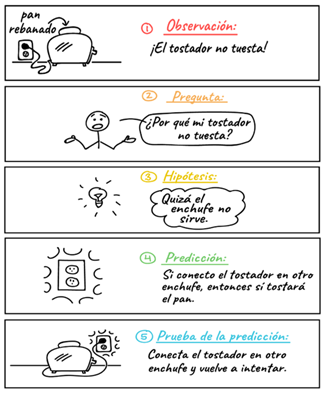 pan
rebanado
① Observación:
¡El tostador no tuesta!
② Pregunta:
¿Por qué mi tostador
no tuesta?
③ Hipótesis:
Quizá el
enchufe no
sirve.
④ Predicción:
Si conecto el tostador en otro
enchufe, entonces sí tostará
el pan.
⑤ Prueba de la predicción:
Conecta el tostador en otro
enchufe y vuelve a intentar.